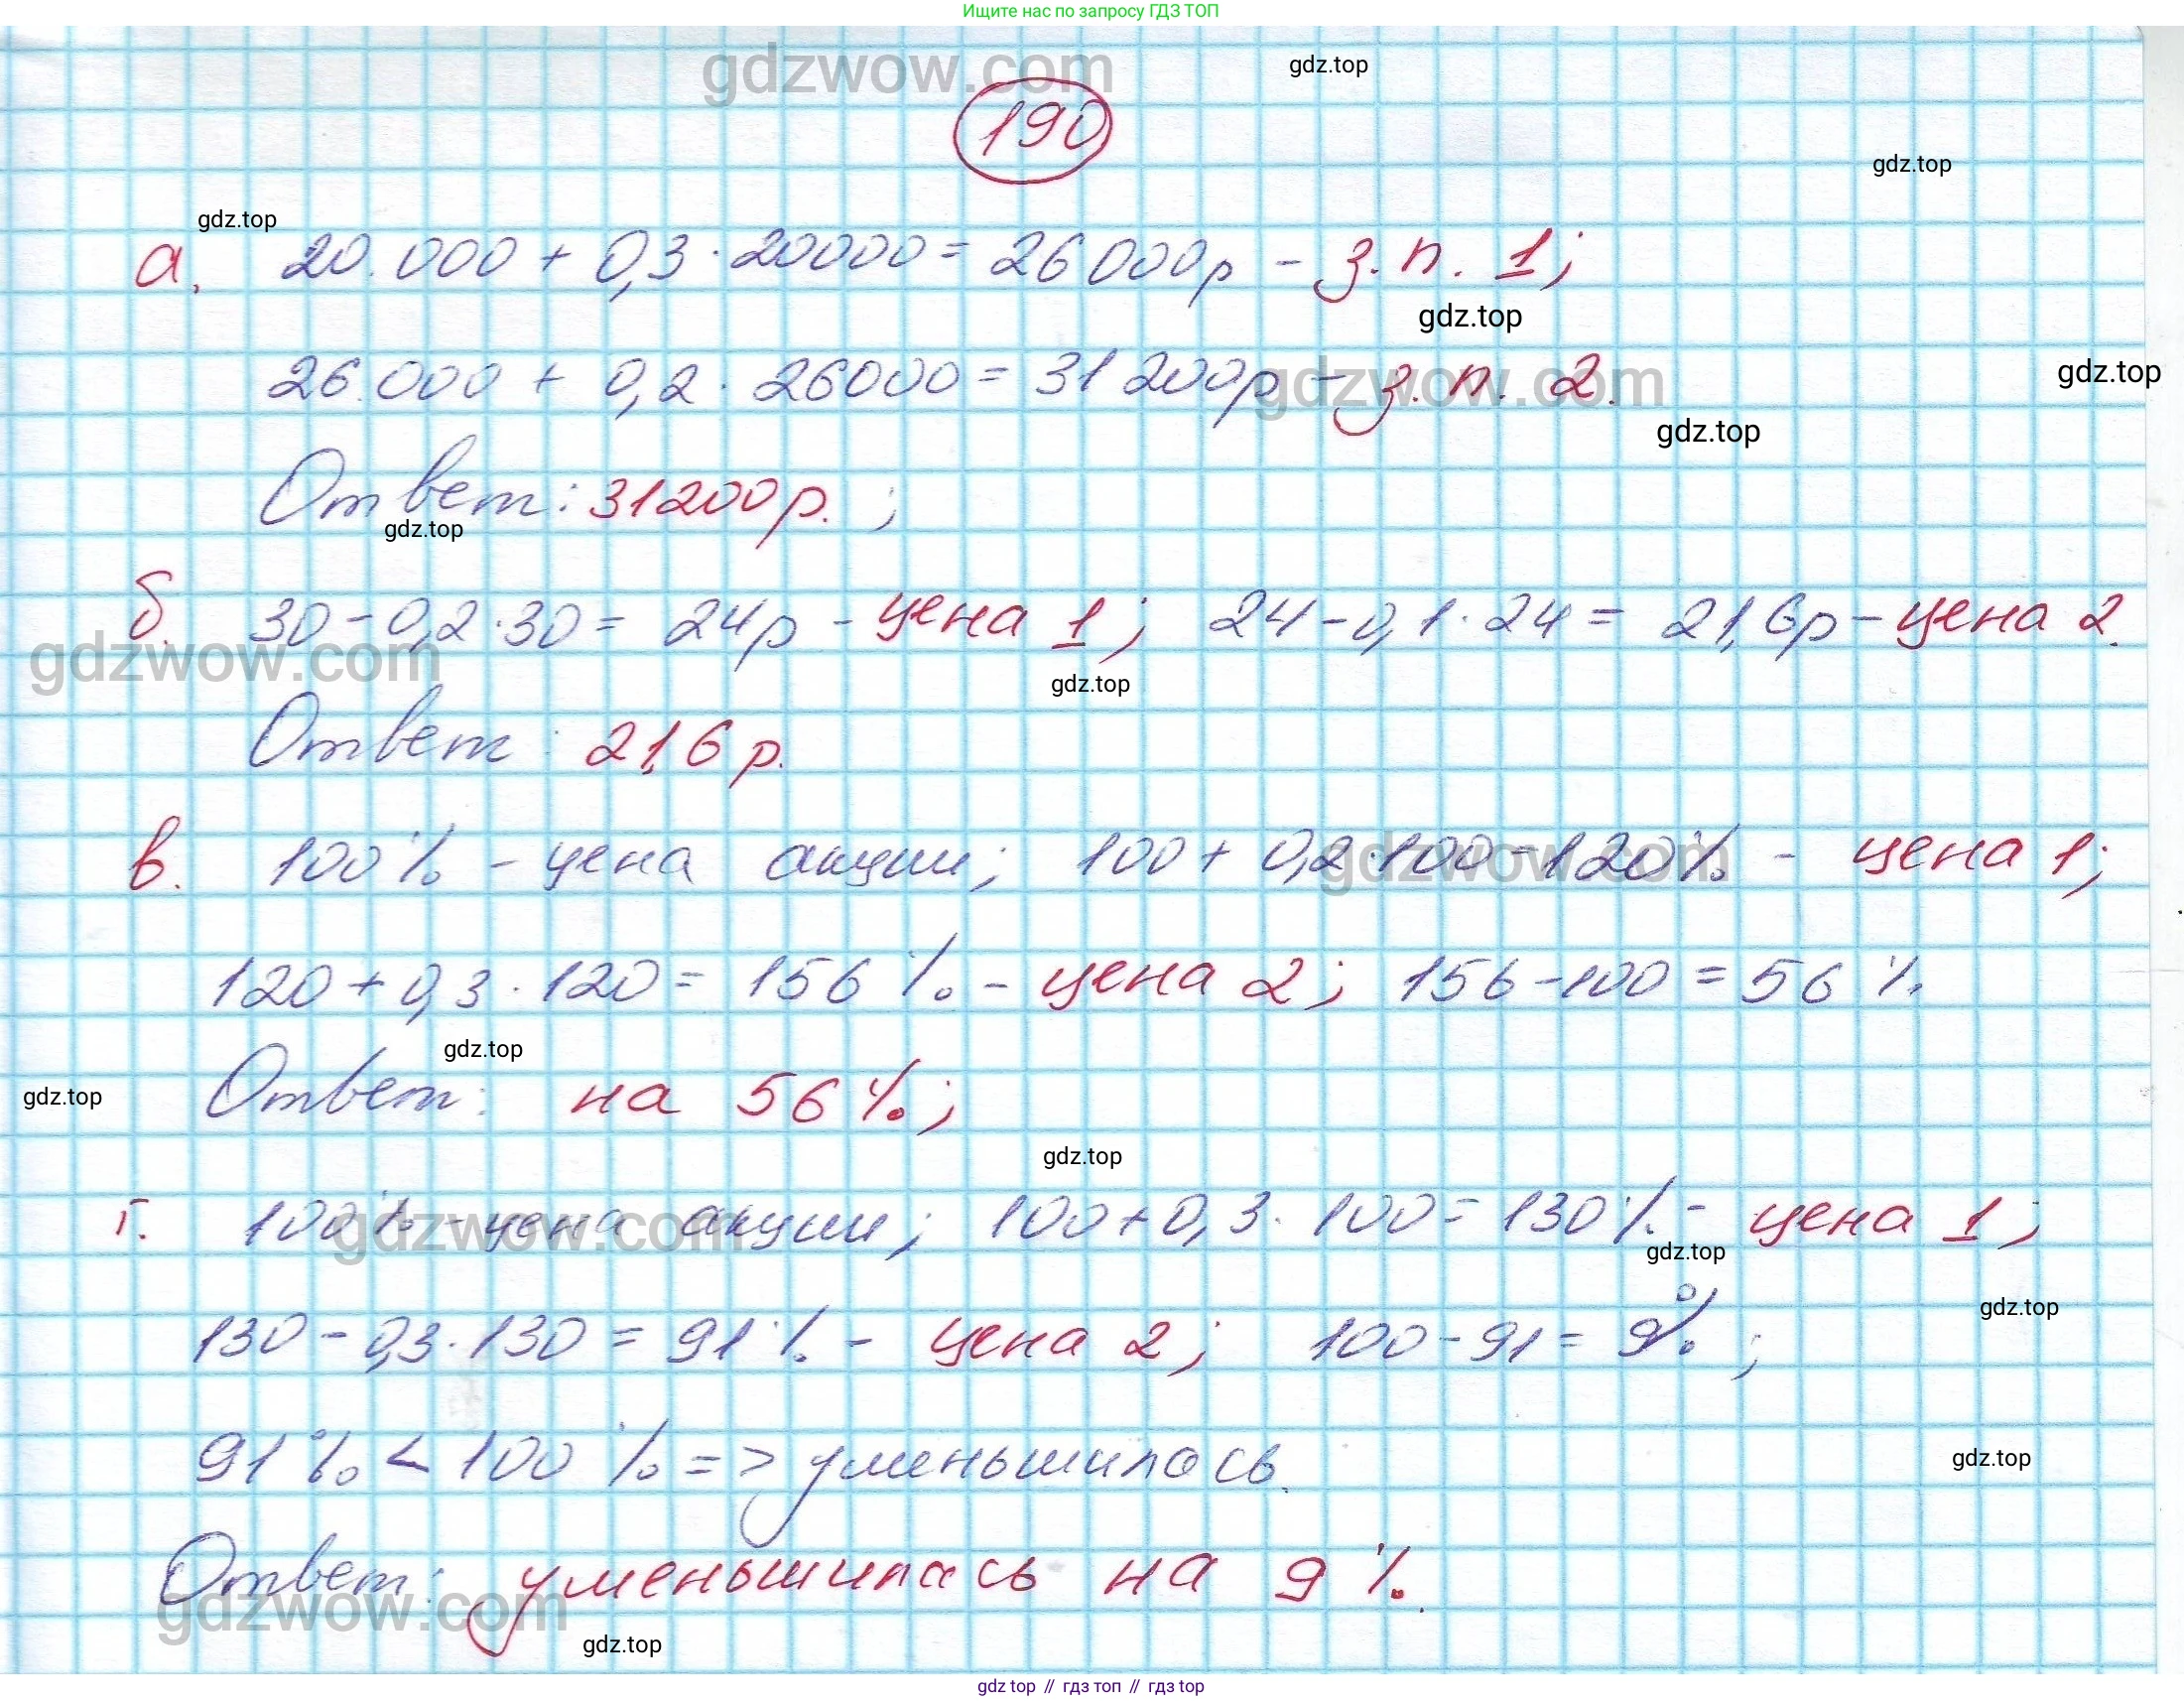 Ищите нас по запросу ГДЗ ТОП
gdzwow.com
gdz.top
190
gdz.top
gdz.top
а. 20.000 + 0,3 · 20000 = 26000р - з.п. 1;
gdz.top
26.000 + 0,2 · 26000 = 31200р - з.п. 2.
gdzwow.com
gdz.top
gdz.top
Ответ: 31200р. ;
gdz.top
б. 30 - 0,2 · 30 = 24р - цена 1; 24 - 0,1 · 24 = 21,6р - цена 2.
gdzwow.com
gdz.top
Ответ: 21,6 р.
в. 100% - цена акции; 100 + 0,2 · 100 = 120% - цена 1;
gdzwow.com
120 + 0,3 · 120 = 156 % - цена 2; 156 - 100 = 56 %
gdz.top
Ответ: на 56 %;
gdz.top
gdz.top
г. 100% - цена акции; 100 + 0,3 · 100 = 130% - цена 1;
gdzwow.com
gdz.top
130 - 0,3 · 130 = 91% - цена 2; 100 - 91 = 9%;
gdz.top
91% < 100 % => уменьшилась.
gdz.top
Ответ: уменьшилась на 9 %.
gdzwow.com
gdz.top
gdz top // гдз топ // гдз top